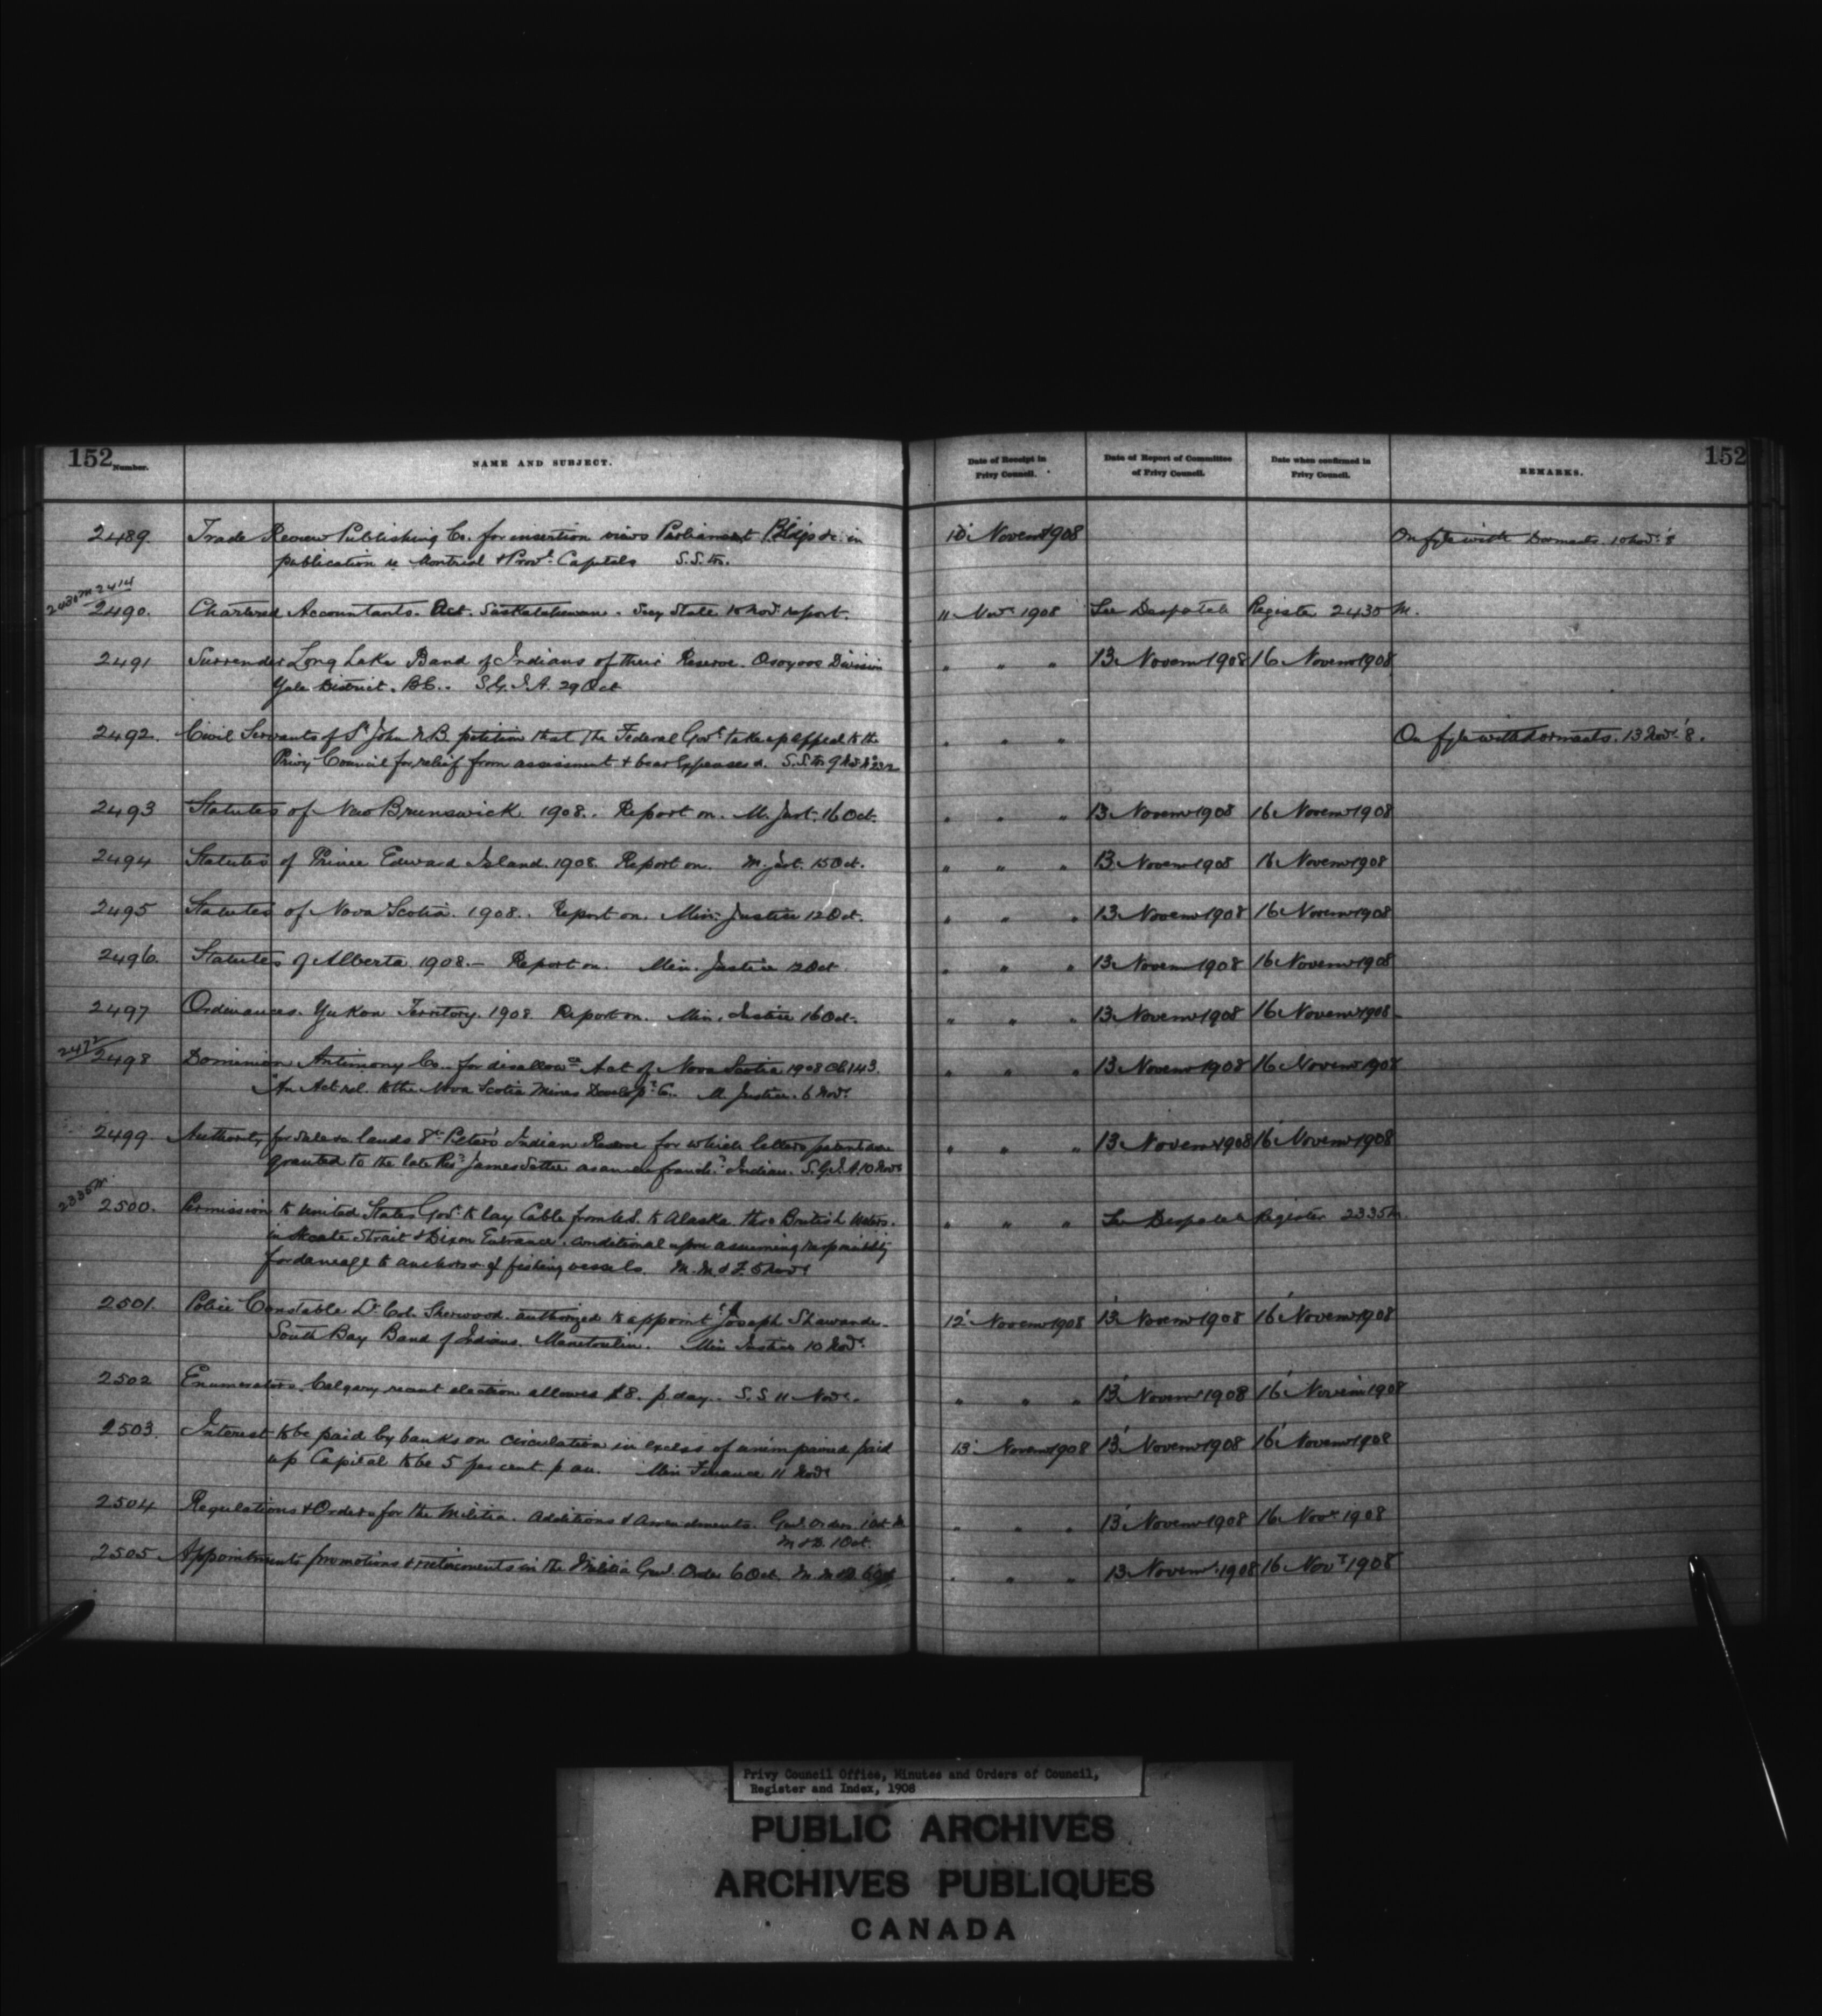 152 Number. NAME AND SUBJECT. Date of Receipt in Privy Council. Date of Report of Committee of Privy Council. Date when confirmed in Privy Council. REMARKS. 152
2489. Trade Review Publishing Co. for insertion views Parliament Bldgs &c. in 10 Novemr 1908 On fyle with Dormants. 10 Novr 8
publication re Montreal & Provl Capitals S.S.
2430M 2414
2490. Chartered Accountants. Act. Saskatchewan. Secy State 10 Novr report. 11 Novr 1908 See Despatch Register 2430 M.
2491 Surrender Long Lake Band of Indians of their Reserve. Osoyoos Division " " " 13 Novemr 1908 16 Novemr 1908
Yale District. B.C. S.G.I.A. 29 Oct
2492. Civil Servants of St John N.B. petition that the Federal Govt take up appeal to the " " " On fyle with dormants. 13 Novr 8.
Privy Council for relief from assessment & bear Expenses S.S. 9 Nov
2493 Statutes of New Brunswick 1908. Report on. M. Just. 16 Oct. " " " 13 Novemr 1908 16 Novemr 1908
2494 Statutes of Prince Edward Island. 1908. Report on. M. Just. 15 Oct. " " " 13 Novemr 1908 16 Novemr 1908
2495 Statutes of Nova Scotia. 1908. Report on. Min. Justice 12 Oct. " " " 13 Novemr 1908 16 Novemr 1908
2496. Statutes of Alberta 1908.— Report on. Min. Justice 12 Oct " " " 13 Novemr 1908 16 Novemr 1908
2497 Ordinances. Yukon Territory. 1908. Report on. Min. Justice 16 Oct. " " " 13 Novemr 1908 16 Novemr 1908
2472
2498 Dominion Antimony Co. for disallowce Act of Nova Scotia 1908 Ch 143. " " " 13 Novemr 1908 16 Novemr 1908
"An Act rel. to the Nova Scotia Mines Developt Co. M Justice. 6 Novr
2499. Authority for sale lands St Peters Indian Reserve for which letters patent were " " " 13 Novemr 1908 16 Novemr 1908
granted to the late James Settee as an enfranchd Indian. S.G.I.A. 10 Novr
2335M.
2500. Permission to United States Govt to lay Cable from U.S. to Alaska thro British Waters. " " " See Despatch Register 2335M.
in Hecate Strait & Dixon Entrance. conditional upon assuming responsibility
for damage to anchors of fishing vessels. M. M & F. 5 Novr
2501. Police Constable Lt Col. Sherwood. authorized to appoint Joseph Shawande. 12 Novemr 1908 13 Novemr 1908 16 Novemr 1908
South Bay Band of Indians. Manitoulin. Min Justice 10 Novr
2502 Enumerators. Calgary recent election allowed $8. p. day. S.S 11 Novr. " " " 13 Novemr 1908 16 Novemr 1908
2503. Interest to be paid by banks on circulation in excess of unimpaired paid 13 Novemr 1908 13 Novemr 1908 16 Novemr 1908
up Capital to be 5 per cent p an. Min Finance 11 Novr
2504 Regulations & Orders for the Militia. Additions & Amendments. Genl Orders 1 Oct " " " 13 Novemr 1908 16 Novr 1908
M & D. 1 Oct.
2505. Appointments promotions & retirements in the Militia Genl. Order 6 Oct. M. M & D 6 Oct " " " 13 Novemr 1908 16 Novr 1908
Privy Council Office, Minutes and Orders of Council,
Register and Index, 1908
PUBLIC ARCHIVES
ARCHIVES PUBLIQUES
CANADA